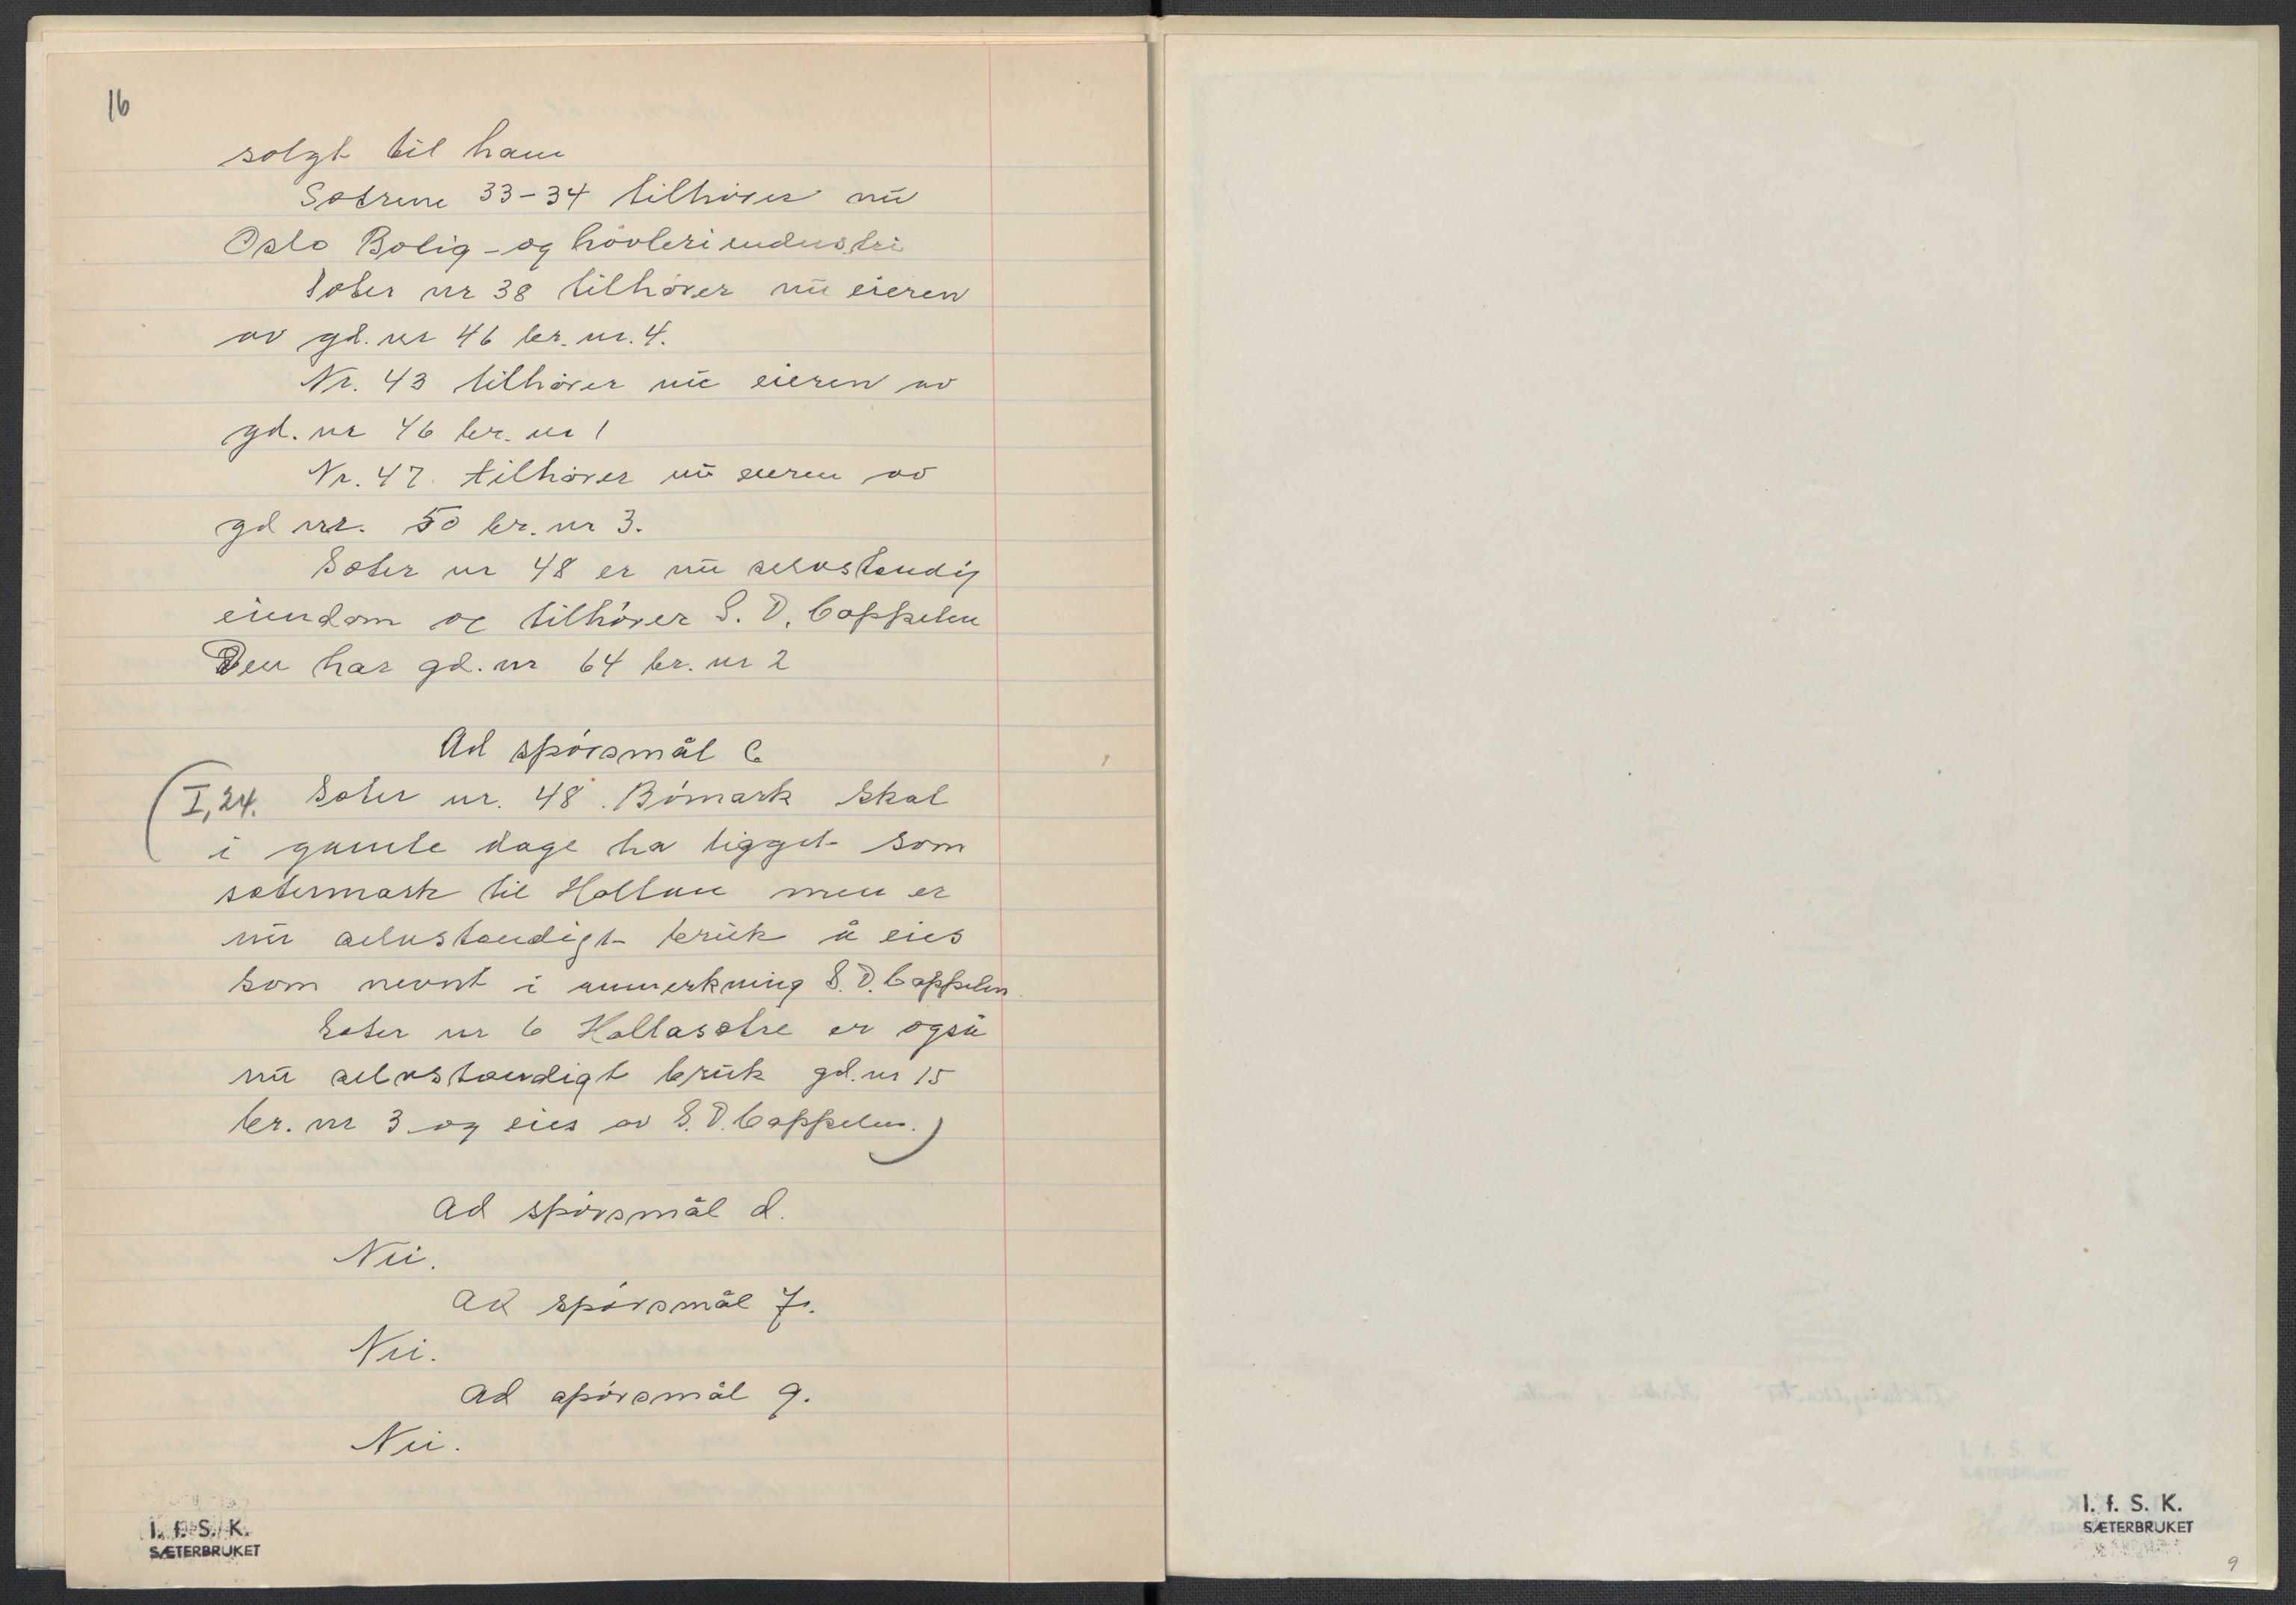 16
solgt til ham
Sætrene 33-34 tilhører nu
Oslo Bolig- og høvleriindustri
Sæter nr 38 tilhører nu eieren
av gd. nr 46 br. nr. 4.
Nr. 43 tilhører nu eieren av
gd. nr 46 br. nr 1
Nr. 47 tilhører nu eieren av
gd nr. 50 br. nr 3.
Sæter nr 48 er nu selvstændig
eiendom og tilhører S. D. Cappelen
Den har gd. nr 64 br. nr 2
Ad spørsmål C
(I,24. Sæter nr. 48. Bømark skal
i gamle dage ha ligget som
sætermark til Holtan men er
nu selvstændigt bruk å eies
som nevnt i anmerkning S. D. Cappelen.
Sæter nr 6 Holtasætre er også
nu selvstændigt bruk gd. nr 15
br. nr 3 og eies av S. D. Cappelen.)
Ad spørsmål d.
Nei.
Ad spørsmål 7.
Nei.
Ad spørsmål 9.
Nei.
I. f. S. K.
SÆTERBRUKET
I. f. S. K.
SÆTERBRUKET
9